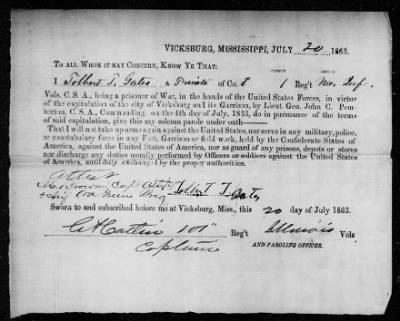 VICKSBURG, MISSISSIPPI, JULY 20 1863.
TO ALL WHOM IT MAY CONCERN, KNOW YE THAT:
I Tolbert T. Gates a Private of Co. E 1 Reg't Mo. Inf.
Vols. C. S. A., being a prisoner of War, in the hands of the United States Forces, in virtue
of the capitulation of the city of Vicksburg and its Garrison, by Lieut. Gen. John C. Pem-
berton, C. S. A., Commanding, on the 4th day of July, 1863, do in pursuance of the terms
of said capitulation, give this my solemn parole under oath——
That I will not take up arms again against the United States, nor serve in any military, police,
or constabulary force in any Fort, Garrison or field work, held by the Confederate States of
America, against the United States of America, nor as guard of any prisons, depots or stores
nor discharge any duties usually performed by Officers or soldiers against the United States
of America, until duly exchanged by the proper authorities.
Attest
Capt Tolbert T. Gates
Sworn to and subscribed before me at Vicksburg, Miss., this 20 day of July 1863.
101st Reg't Illinois Vols
Captain AND PAROLING OFFICER.